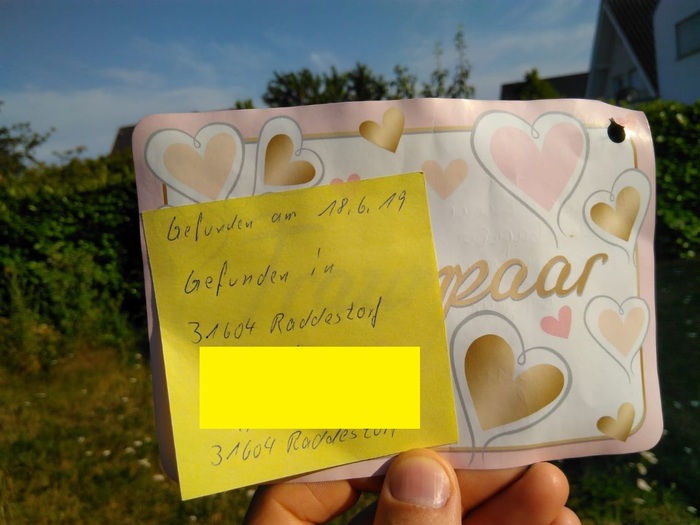 Gefunden am 18.6.19
Gefunden in
31604 Raddestorf
31604 Raddestorf
Traumpaar